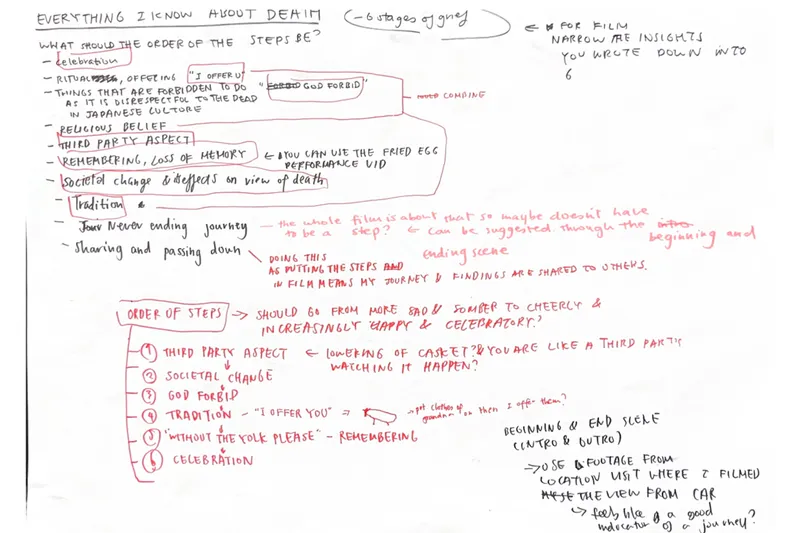 EVERYTHING I KNOW ABOUT DEATH
- 6 stages of grief
WHAT SHOULD THE ORDER OF THE STEPS BE?
- celebration
- RITUAL, OFFERING "I OFFER U"
- THINGS THAT ARE FORBIDDEN TO DO "GOD FORBID"
AS IT IS DISRESPECTFUL TO THE DEAD
IN JAPANESE CULTURE
COMBINE
- RELIGIOUS BELIEF
- THIRD PARTY ASPECT
- REMEMBERING, LOSS OF MEMORY ← YOU CAN USE THE FRIED EGG
PERFORMANCE VID
- Societal change & effects on view of death
- Tradition
- Never ending journey - the whole film is about that so maybe doesn't have
to be a step? ← can be suggested through the beginning and
ending scene
- Sharing and passing down
DOING THIS
AS PUTTING THE STEPS
IN FILM MEANS MY JOURNEY & FINDINGS ARE SHARED TO OTHERS.
← FOR FILM
NARROW THE INSIGHTS
YOU WROTE DOWN INTO
6
ORDER OF STEPS → SHOULD GO FROM MORE SAD & SOMBER TO CHEERLY &
INCREASINGLY HAPPY & CELEBRATORY?
① THIRD PARTY ASPECT ← LOWERING OF CASKET? & YOU ARE LIKE A THIRD PARTY
WATCHING IT HAPPEN?
② SOCIETAL CHANGE
③ GOD FORBID
④ TRADITION - "I OFFER YOU" → put clothes of grandma on then I offer them?
⑤ "WITHOUT THE YOLK PLEASE" - REMEMBERING
⑥ CELEBRATION
BEGINNING & END SCENE
(INTRO & OUTRO)
→ USE FOOTAGE FROM
LOCATION VISIT WHERE I FILMED
THE VIEW FROM CAR
↳ feels like a good
indicator of a journey?